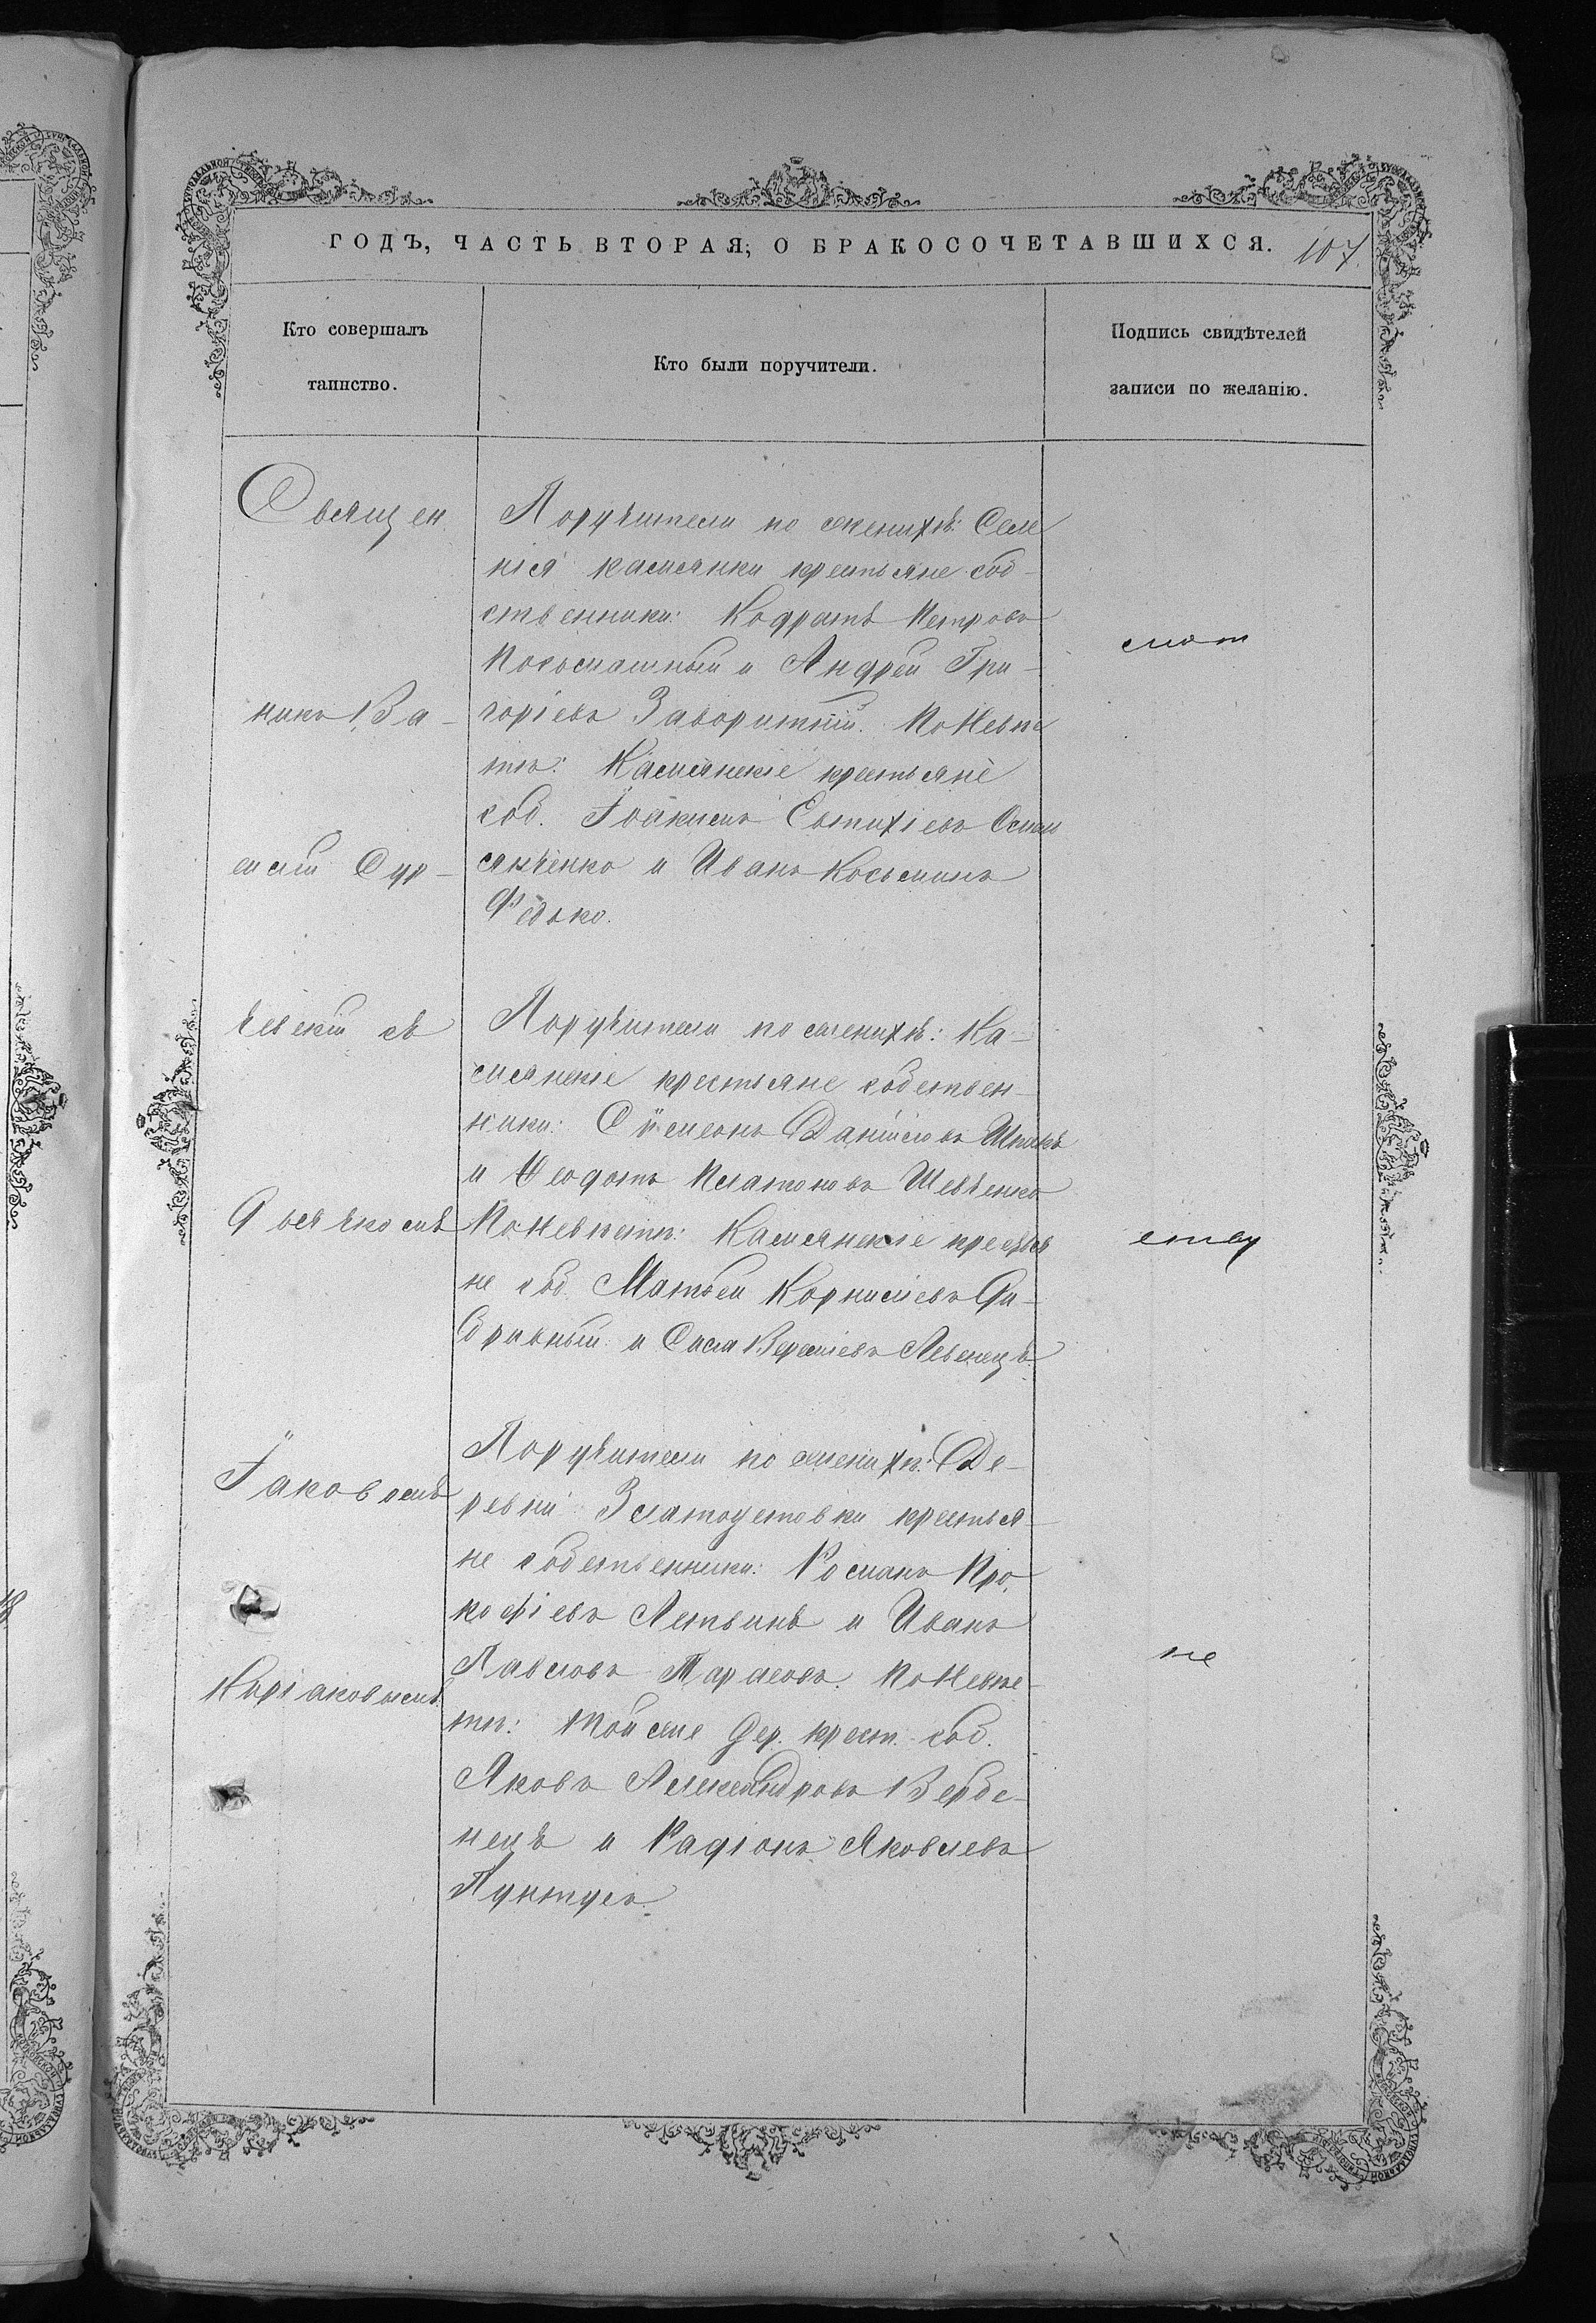 ГОДЪ, ЧАСТЬ ВТОРАЯ, О БРАКОСОЧЕТАВШИХСЯ. 107.
Кто совершалъ
таинство.
Кто были поручители.
Подпись свидѣтелей
записи по желанію.
Священ
никъ Ва-
силій Суд-
чевскій съ
Дьячкомъ
Іаковомъ
Киріаковымъ.
Поручители по женихѣ: Селе
нія Камянки крестьяне соб-
ственники: Кодратъ Петровъ
и Андрей Гри-
горіевъ Заворитній. По Невѣс
тѣ: Камянскіе крестьяне
соб. Іоакимъ Евтихіевъ
и Иванъ Косьминъ
Федько.
Поручители по женихѣ: Ка-
мянскіе крестьяне собствен-
ники: Симеонъ Даніиловъ Шпакъ
и Феодотъ Платоновъ Шевченко
По Невѣстѣ: Камянскіе крестья
не соб. Матвей Корниліевъ Ди-
бривный и Сила Левенецъ
Поручители по женихѣ: Де-
ревни Златоустовки крестья-
не собственники: Романъ Про-
кофіевъ Летвинъ и Иванъ
Павловъ Тарасовъ. По Невѣс-
тѣ: той же дер. крест. соб.
Яковъ Александровъ Вербе-
нецъ и Радіонъ Яковлевъ
Пунтусъ.
ству
не